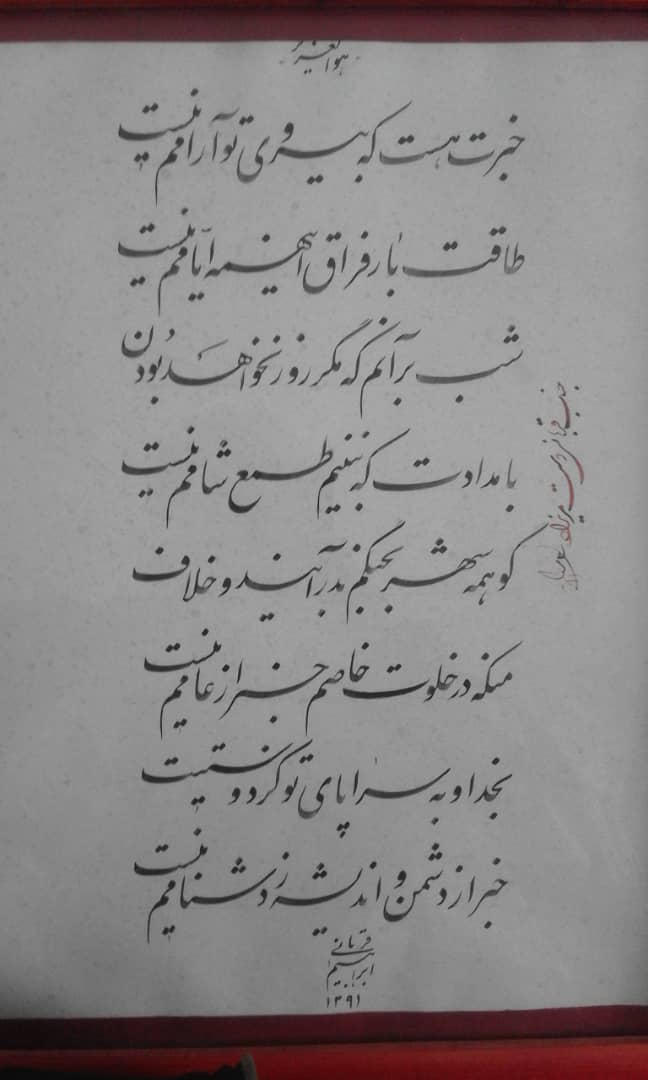 هوالعزیز
خبرت هست که بیروی تو آرامم نیست
طاقت بار فراق اینهمه ایّامم نیست
شب برآنم که مگر روز نخواهد بودن
بامدادت که نبینم طمع شامم نیست
کو همه شهر بجنگم بدرآیند و خلاف
منکه در خلوت خاصم خبر از عامم نیست
بخدا و به سراپای تو کز دوستیت
خبر از دشمن و اندیشه ز دشنامم نیست
قربانی
ابراهیم
۱۳۹۱